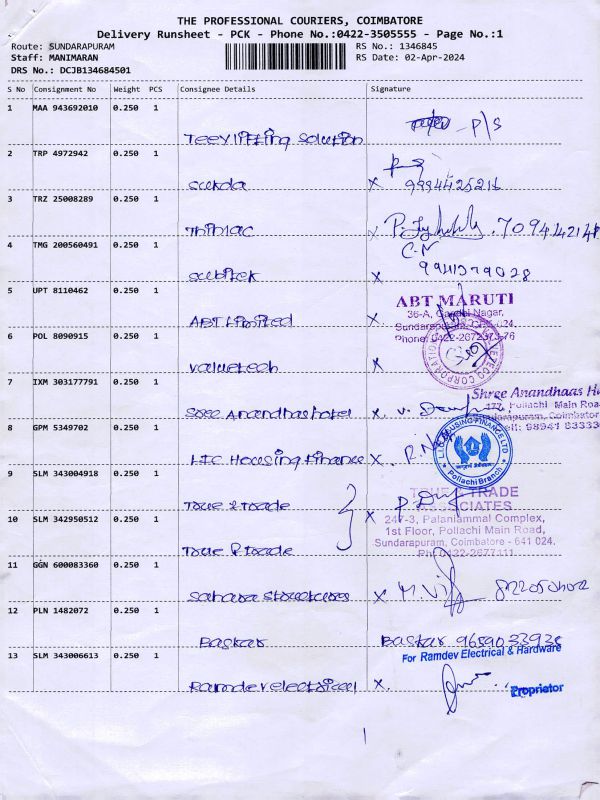 THE PROFESSIONAL COURIERS, COIMBATORE
Delivery Runsheet - PCK - Phone No.:0422-3505555 - Page No.:1
Route: SUNDARAPURAM RS No.: 1346845
Staff: MANIMARAN RS Date: 02-Apr-2024
DRS No.: DCJB134684501
S No Consignment No Weight PCS Consignee Details Signature
1 MAA 943692010 0.250 1
Teeylifting Solution P/S
2 TRP 4972942 0.250 1
Surda x
3 TRZ 25008289 0.250 1
x
4 TMG 200560491 0.250 1
Subitek x 9941379028
5 UPT 8110462 0.250 1 ABT MARUTI
36-A, Gandhi Nagar,
ABT Limited x Sundarapuram, CBE-024.
6 POL 8090915 0.250 1 Phone: 0422-2672373-76
Valuetech x
7 IXM 303177791 0.250 1 Shree Anandhaas
177, Pollachi Main
Sree Anandhas hotel x Sundarapuram, Coimbator
8 GPM 5349702 0.250 1 Cell: 98941 83333
LIC HOUSING FINANCE LTD
LIC Housing Finance x Pollachi Branch
9 SLM 343004918 0.250 1 TRUE 2 TRADE
ASSOCIATES
True 2 Trade x
10 SLM 342950512 0.250 1 247-3, Palaniammal Complex,
1st Floor, Pollachi Main Road,
Sundarapuram, Coimbatore - 641 024.
True 2 Trade Ph: 0422-2677111
11 GGN 600083360 0.250 1
Sahara Structures x
12 PLN 1482072 0.250 1
Baskar Baskar 9659033938
13 SLM 343006613 0.250 1 For Ramdev Electrical & Hardware
Ramdev electrical x Proprietor